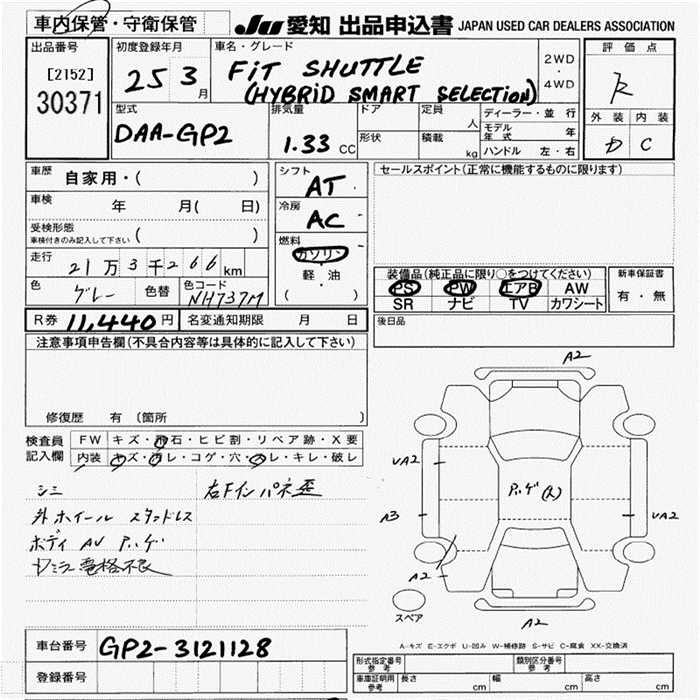 車内保管・守衛保管
JU 愛知 出品申込書 JAPAN USED CAR DEALERS ASSOCIATION
出品番号
[2152]
30371
初度登録年月
25 3月
車名・グレード
FiT SHUTTLE
(HYBRiD SMART SELECTiON)
2WD
・
4WD
評価点
R
外装 内装
D C
型式
DAA-GP2
排気量
1.33 CC
ドア
形状
定員
人
積載
kg
ディーラー・並行
モデル年式 年
ハンドル 左・右
車歴 自家用・( )
車検 年 月( 日)
受検形態
車検付きのみ記入して下さい ( )
走行 21万3千266km
色 グレー 色替 色コード NH737M
シフト
AT
冷房
AC
燃料
ガソリン
軽・油
( )
セールスポイント(正常に機能するものに限ります)
装備品(純正品に限り○をつけてください)
PS PW エアB AW
SR ナビ TV カワシート
新車保証書
有・無
R券 11,440円 名変通知期限 月 日
後日品
注意事項申告欄(不具合内容等は具体的に記入して下さい)
修復歴 有 〔箇所 〕
検査員記入欄
FW キズ・飛石・ヒビ割・リペア跡・X要
内装 キズ・ヨゴレ・コゲ・穴・スレ・キレ・破レ
シミ
右Fインパネ歪
外ホイール スタッドレス
ボディ AU ハゲ
Dミラ電格不良
A2
UA2
A3
A2
ハゲ(大)
UA2
A2
スペア
A-キズ E-エクボ U-凹み W-補修跡 S-サビ C-腐食 XX-交換済
車台番号 GP2-3121128
登録番号
形式指定番号参考
類別区分番号参考
車庫証明用参考 長さ cm 幅 cm 高さ cm